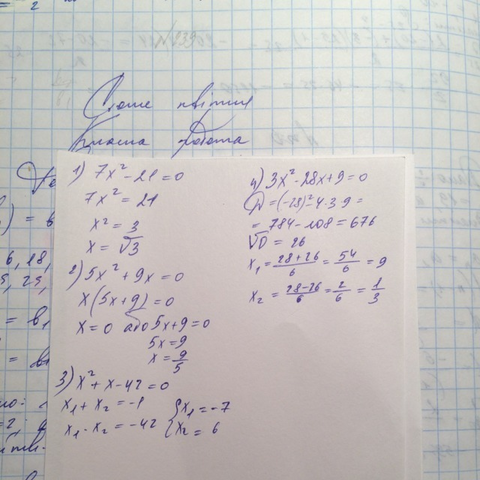 Сьоме квітня
Класна робота
1) 7x² - 21 = 0
7x² = 21
x² = 3
x = √3
2) 5x² + 9x = 0
x(5x+9) = 0
x = 0 або 5x+9 = 0
5x = 9
x = 9/5
3) x² + x - 42 = 0
x₁ + x₂ = -1
x₁ · x₂ = -42
{ x₁ = -7
x₂ = 6
4) 3x² - 28x + 9 = 0
D = (-28)² - 4·3·9 =
= 784 - 108 = 676
√D = 26
x₁ = 28+26/6 = 54/6 = 9
x₂ = 28-26/6 = 2/6 = 1/3